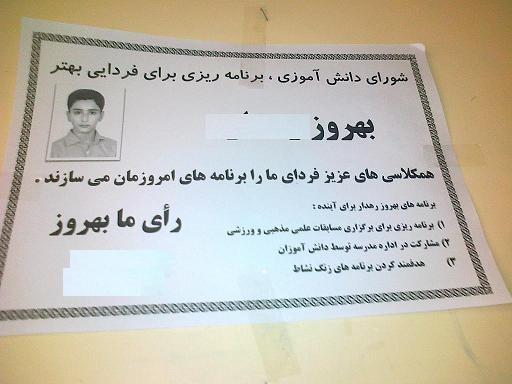 شورای دانش آموزی ، برنامه ریزی برای فردایی بهتر
بهروز
همکلاسی های عزیز فردای ما را برنامه های امروزمان می سازند .
برنامه های بهروز رهدار برای آینده :
۱) برنامه ریزی برای برگزاری مسابقات علمی مذهبی و ورزشی
۲) مشارکت در اداره مدرسه توسط دانش آموزان
۳) هدفمند کردن برنامه های زنگ نشاط
رأی ما بهروز